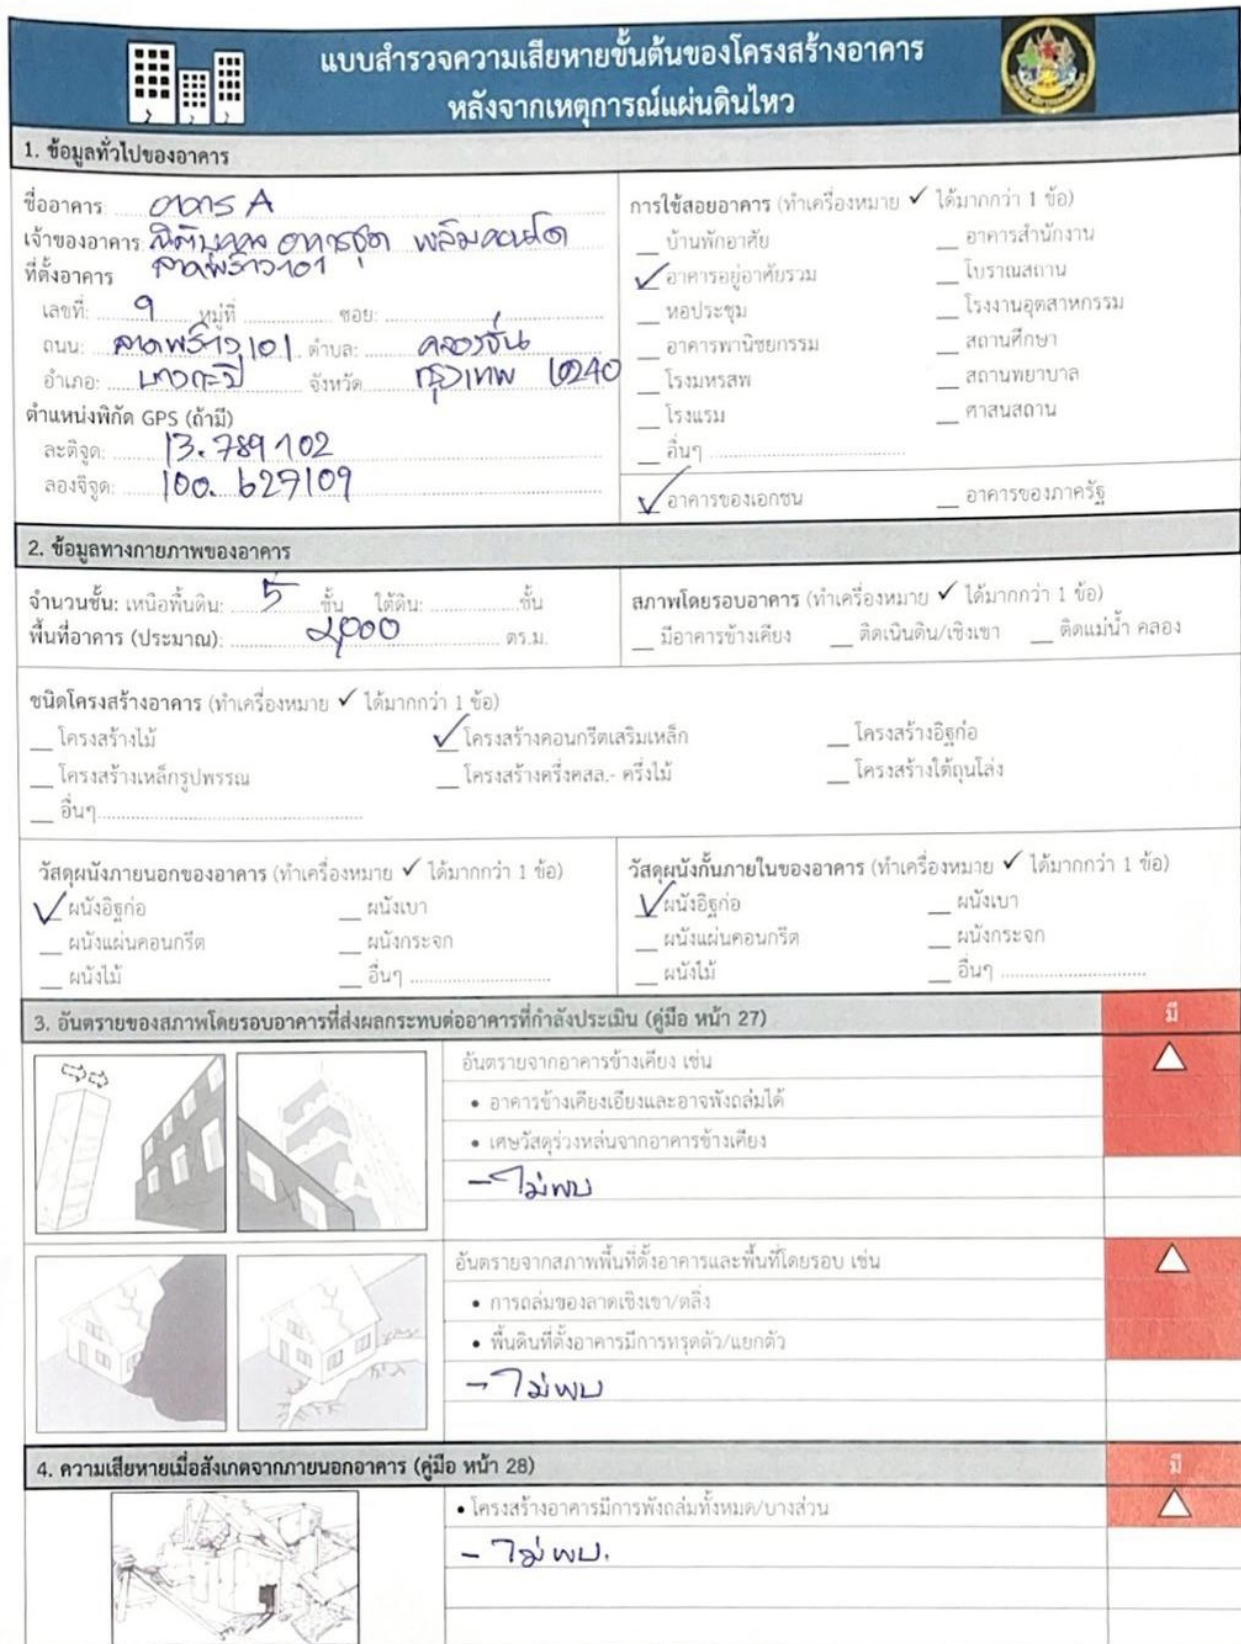 แบบสำรวจความเสียหายขั้นต้นของโครงสร้างอาคาร
หลังจากเหตุการณ์แผ่นดินไหว
1. ข้อมูลทั่วไปของอาคาร
ชื่ออาคาร อาคาร A
เจ้าของอาคาร นิติบุคคล อาคารชุด พลัมคอนโด
ลาดพร้าว101
ที่ตั้งอาคาร
เลขที่: 9 หมู่ที่ ซอย:
ถนน: ลาดพร้าว 101 ตำบล: คลองจั่น
อำเภอ: บางกะปิ จังหวัด กรุงเทพ 10240
ตำแหน่งพิกัด GPS (ถ้ามี)
ละติจูด: 13.789102
ลองจิจูด: 100.627109
การใช้สอยอาคาร (ทำเครื่องหมาย ✓ ได้มากกว่า 1 ข้อ)
__ บ้านพักอาศัย __ อาคารสำนักงาน
✓ อาคารอยู่อาศัยรวม __ โบราณสถาน
__ หอประชุม __ โรงงานอุตสาหกรรม
__ อาคารพานิชยกรรม __ สถานศึกษา
__ โรงมหรสพ __ สถานพยาบาล
__ โรงแรม __ ศาสนสถาน
__ อื่นๆ
✓ อาคารของเอกชน __ อาคารของภาครัฐ
2. ข้อมูลทางกายภาพของอาคาร
จำนวนชั้น: เหนือพื้นดิน: 5 ชั้น ใต้ดิน: ชั้น
พื้นที่อาคาร (ประมาณ): 2,000 ตร.ม.
สภาพโดยรอบอาคาร (ทำเครื่องหมาย ✓ ได้มากกว่า 1 ข้อ)
__ มีอาคารข้างเคียง __ ติดเนินดิน/เชิงเขา __ ติดแม่น้ำ คลอง
ชนิดโครงสร้างอาคาร (ทำเครื่องหมาย ✓ ได้มากกว่า 1 ข้อ)
__ โครงสร้างไม้ ✓ โครงสร้างคอนกรีตเสริมเหล็ก __ โครงสร้างอิฐก่อ
__ โครงสร้างเหล็กรูปพรรณ __ โครงสร้างครึ่งคสล.- ครึ่งไม้ __ โครงสร้างใต้ถุนโล่ง
__ อื่นๆ
วัสดุผนังภายนอกของอาคาร (ทำเครื่องหมาย ✓ ได้มากกว่า 1 ข้อ)
✓ ผนังอิฐก่อ __ ผนังเบา
__ ผนังแผ่นคอนกรีต __ ผนังกระจก
__ ผนังไม้ __ อื่นๆ
วัสดุผนังกั้นภายในของอาคาร (ทำเครื่องหมาย ✓ ได้มากกว่า 1 ข้อ)
✓ ผนังอิฐก่อ __ ผนังเบา
__ ผนังแผ่นคอนกรีต __ ผนังกระจก
__ ผนังไม้ __ อื่นๆ
3. อันตรายของสภาพโดยรอบอาคารที่ส่งผลกระทบต่ออาคารที่กำลังประเมิน (คู่มือ หน้า 27) มี
อันตรายจากอาคารข้างเคียง เช่น
• อาคารข้างเคียงเอียงและอาจพังถล่มได้
• เศษวัสดุร่วงหล่นจากอาคารข้างเคียง
- ไม่พบ
อันตรายจากสภาพพื้นที่ตั้งอาคารและพื้นที่โดยรอบ เช่น
• การถล่มของลาดเชิงเขา/ตลิ่ง
• พื้นดินที่ตั้งอาคารมีการทรุดตัว/แยกตัว
- ไม่พบ
4. ความเสียหายเมื่อสังเกตจากภายนอกอาคาร (คู่มือ หน้า 28) มี
• โครงสร้างอาคารมีการพังถล่มทั้งหมด/บางส่วน
- ไม่พบ.